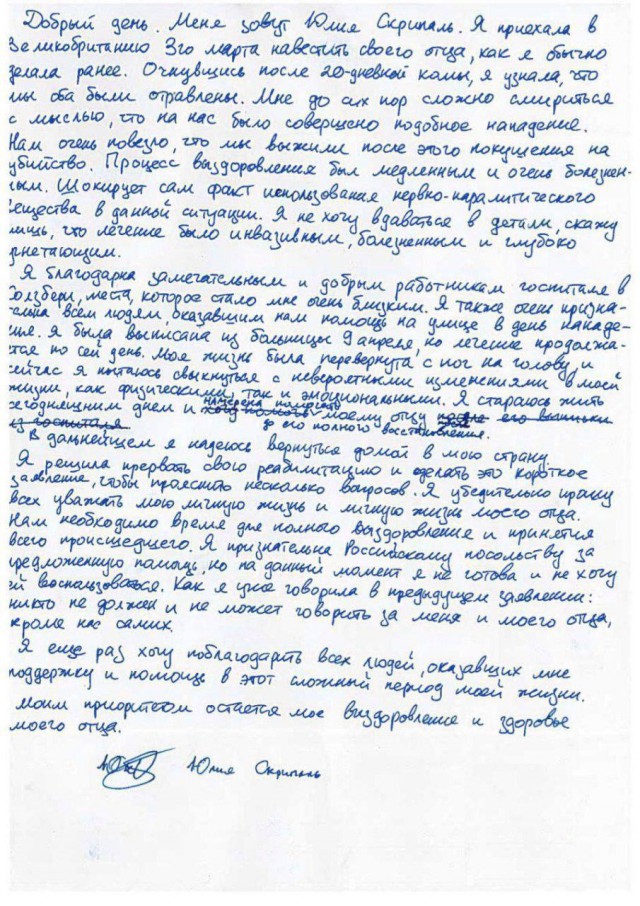 Добрый день. Меня зовут Юлия Скрипаль. Я приехала в
Великобританию 3го марта навестить своего отца, как я обычно
делала ранее. Очнувшись после 20-дневной комы, я узнала, что
мы оба были отравлены. Мне до сих пор сложно смириться
с мыслью, что на нас было совершено подобное нападение.
Нам очень повезло, что мы выжили после этого покушения на
убийство. Процесс выздоровления был медленным и очень болезнен-
ным. Шокирует сам факт использования нервно-паралитического
вещества в данной ситуации. Я не хочу вдаваться в детали, скажу
лишь, что лечение было инвазивным, болезненным и глубоко
угнетающим.
Я благодарна замечательным и добрым работникам госпиталя в
Солзбери, места, которое стало мне очень близким. Я также очень призна-
тельна всем людям, оказавшим нам помощь на улице в день нападе-
ния. Я была выписана из больницы 9 апреля, но лечение продолжа-
ется по сей день. Моя жизнь была перевернута с ног на голову, и
сейчас я пытаюсь свыкнуться с невероятными изменениями в моей
жизни, как физическими, так и эмоциональными. Я стараюсь жить
намерена помогать
сегодняшним днем и хочу помочь моему отцу после его выписки
из госпиталя до его полного восстановления.
В дальнейшем я надеюсь вернуться домой в мою страну.
Я решила прервать свою реабилитацию и сделать это короткое
заявление, чтобы прояснить несколько вопросов. Я убедительно прошу
всех уважать мою личную жизнь и личную жизнь моего отца.
Нам необходимо время для полного выздоровление и принятия
всего происшедшего. Я признательна Российскому посольству за
предложенную помощь, но на данный момент я не готова и не хочу
ей воспользоваться. Как я уже говорила в предыдущем заявлении:
никто не должен и не может говорить за меня и моего отца,
кроме нас самих.
Я еще раз хочу поблагодарить всех людей, оказавших мне
поддержку и помощь в этот сложный период моей жизни.
Моим приоритетом остается мое выздоровление и здоровье
моего отца.
Юлия Скрипаль